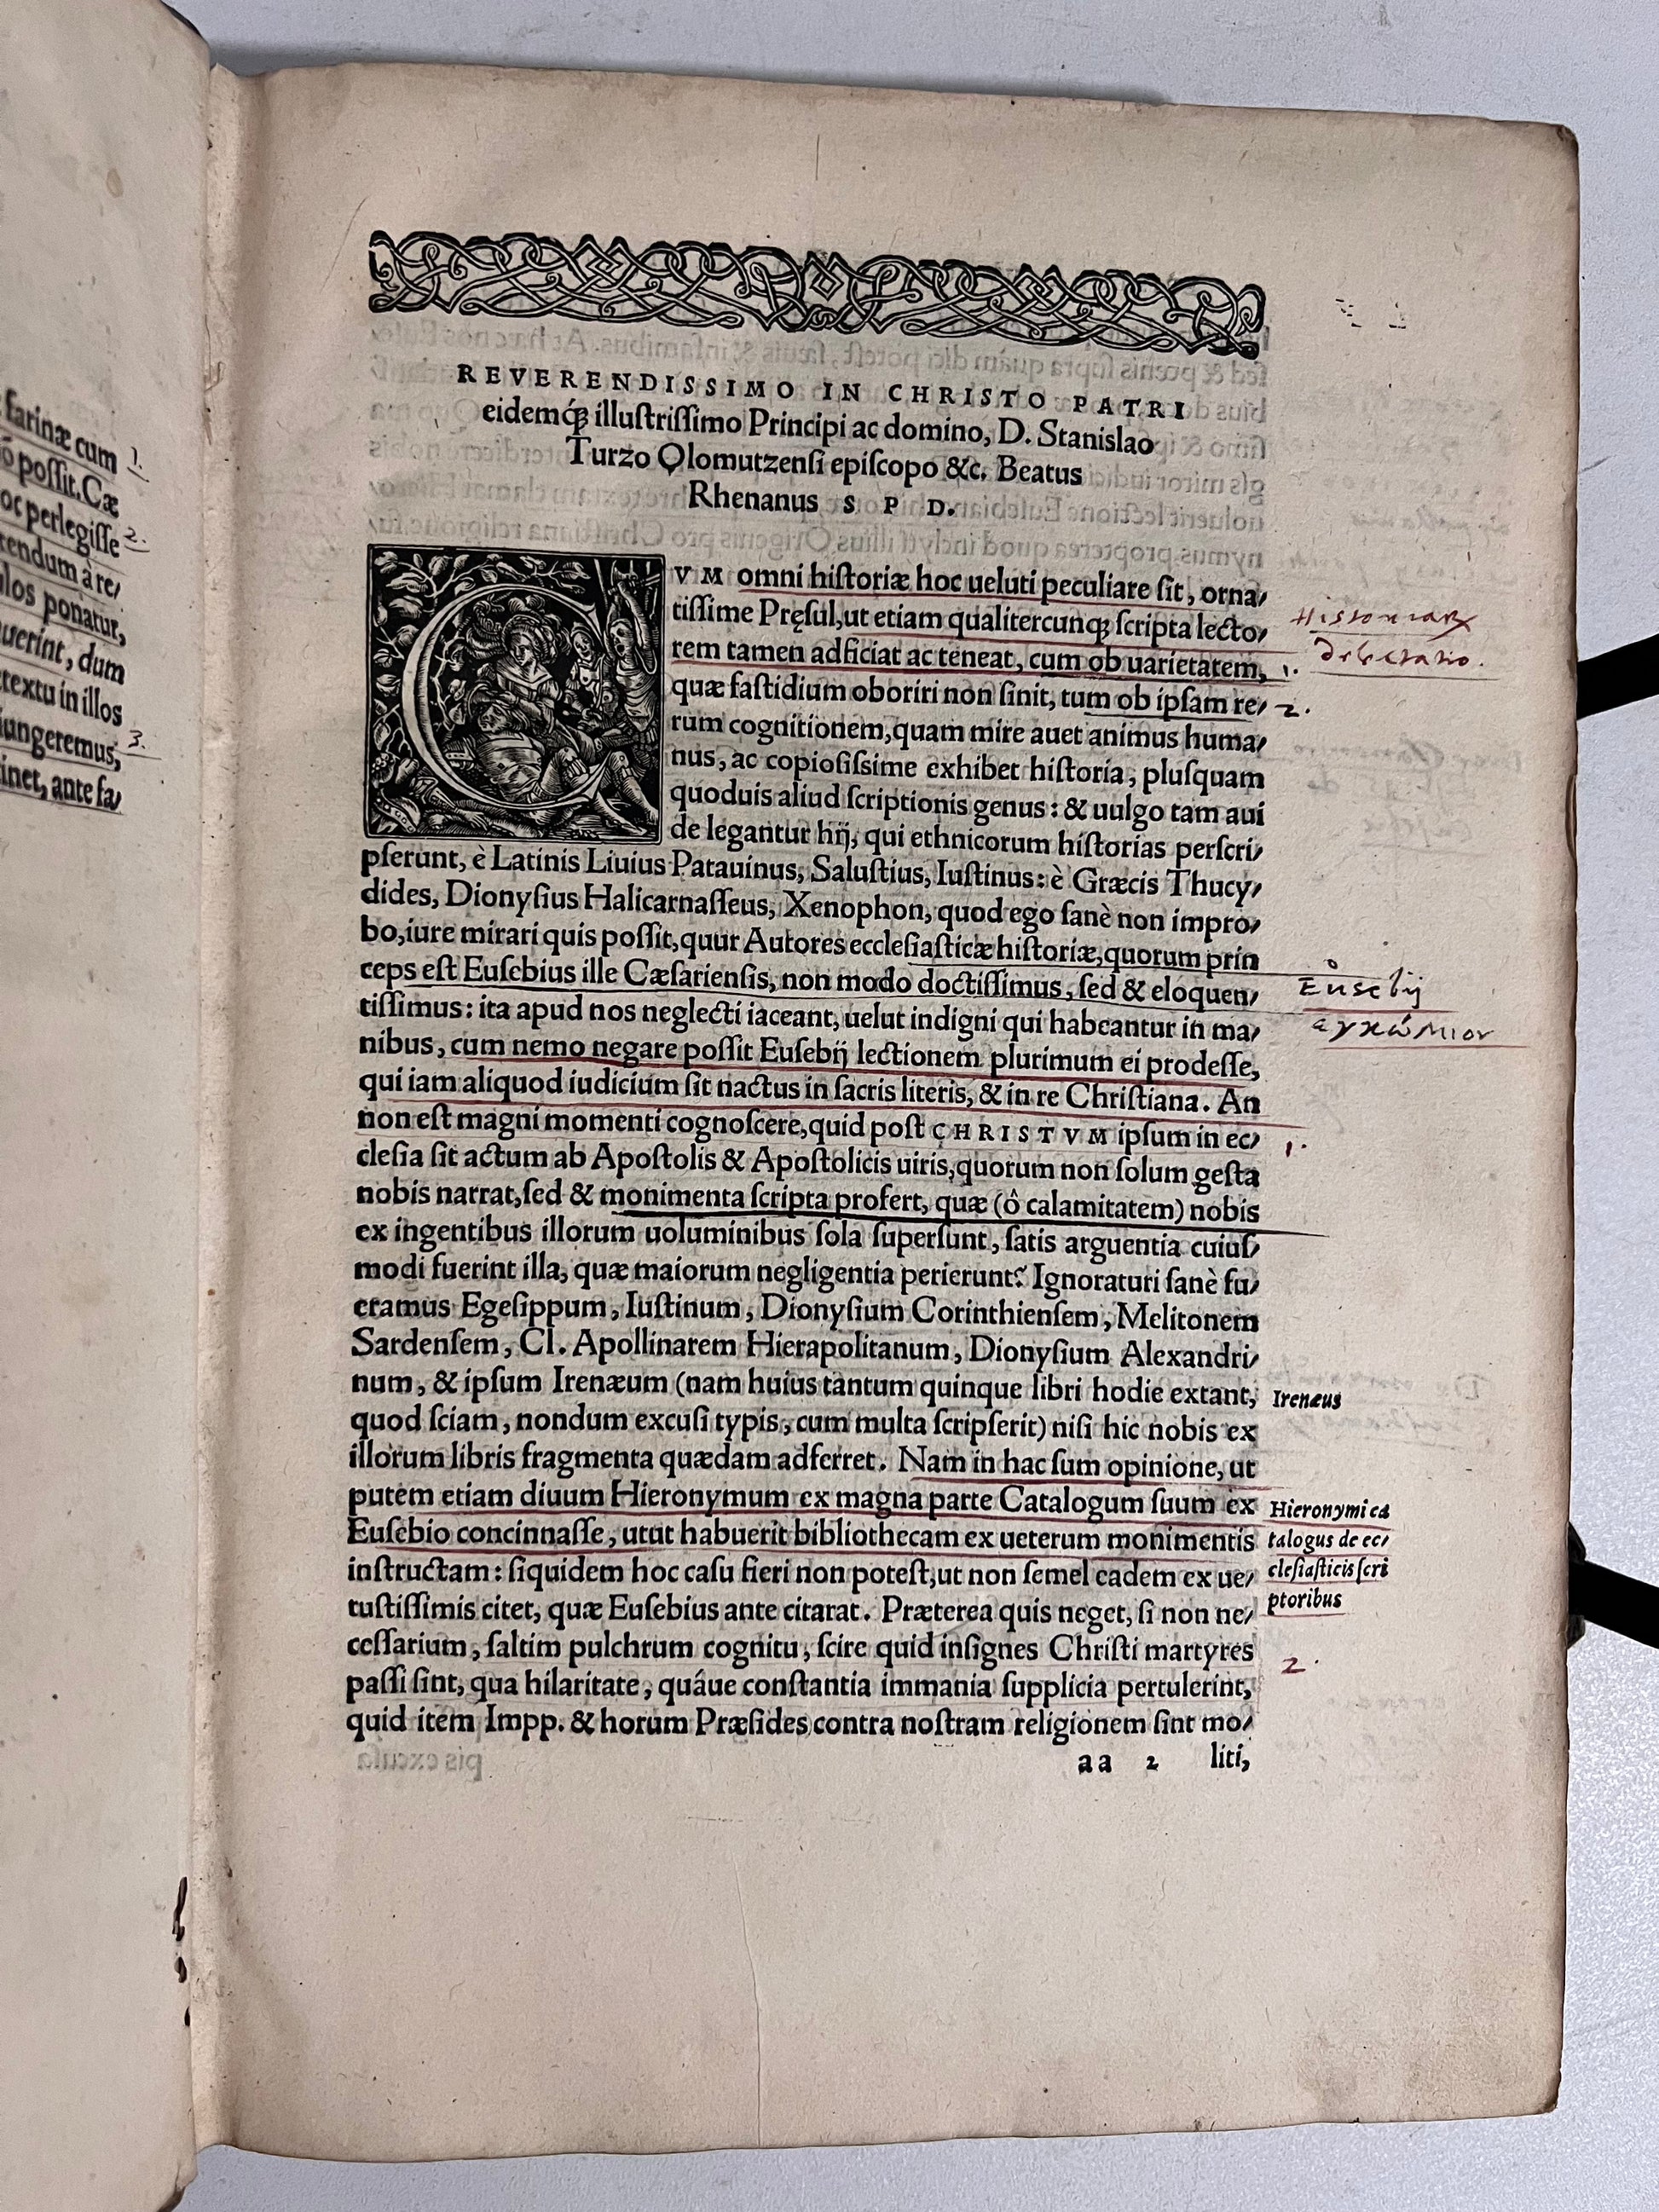 farinæ cum 1.
ō possit. Cæ
oc perlegisse 2.
tendum à re/
los ponatur,
uerint, dum
textu in illos
iungeremus, 3.
inet, ante fa/
REVERENDISSIMO IN CHRISTO PATRI
eidemq́ꝫ illustrissimo Principi ac domino, D. Stanislao
Turzo Olomutzensi episcopo &c. Beatus
Rhenanus S P D.
CVM omni historiæ hoc ueluti peculiare sit, orna/
tissime Pręsul, ut etiam qualitercunqꝫ scripta lecto/
rem tamen adficiat ac teneat, cum ob uarietatem,
quæ fastidium oboriri non sinit, tum ob ipsam re/
rum cognitionem, quam mire auet animus huma/
nus, ac copiosissime exhibet historia, plusquam
quoduis aliud scriptionis genus: & uulgo tam aui
de legantur hij, qui ethnicorum historias perscri/
pserunt, è Latinis Liuius Patauinus, Salustius, Iustinus: è Græcis Thucy/
dides, Dionysius Halicarnasseus, Xenophon, quod ego sanè non impro/
bo, iure mirari quis possit, quur Autores ecclesiasticæ historiæ, quorum prin
ceps est Eusebius ille Cæsariensis, non modo doctissimus, sed & eloquen/
tissimus: ita apud nos neglecti iaceant, uelut indigni qui habeantur in ma/
nibus, cum nemo negare possit Eusebij lectionem plurimum ei prodesse,
qui iam aliquod iudicium sit nactus in sacris literis, & in re Christiana. An
non est magni momenti cognoscere, quid post CHRISTVM ipsum in ec/
clesia sit actum ab Apostolis & Apostolicis uiris, quorum non solum gesta
nobis narrat, sed & monimenta scripta profert, quæ (ô calamitatem) nobis
ex ingentibus illorum uoluminibus sola supersunt, satis arguentia cuius/
modi fuerint illa, quæ maiorum negligentia perierunt? Ignoraturi sanè fu/
eramus Egesippum, Iustinum, Dionysium Corinthiensem, Melitonem
Sardensem, Cl. Apollinarem Hierapolitanum, Dionysium Alexandri/
num, & ipsum Irenæum (nam huius tantum quinque libri hodie extant,
quod sciam, nondum excusi typis, cum multa scripserit) nisi hic nobis ex
illorum libris fragmenta quædam adferret. Nam in hac sum opinione, ut
putem etiam diuum Hieronymum ex magna parte Catalogum suum ex
Eusebio concinnasse, utut habuerit bibliothecam ex ueterum monimentis
instructam: siquidem hoc casu fieri non potest, ut non semel eadem ex ue/
tustissimis citet, quæ Eusebius ante citarat. Præterea quis neget, si non ne/
cessarium, saltim pulchrum cognitu, scire quid insignes Christi martyres
passi sint, qua hilaritate, quáue constantia immania supplicia pertulerint,
quid item Impp. & horum Præsides contra nostram religionem sint mo/
aa 2 liti,
Historiarꝝ
delectatio.
1.
2.
Eusebij
εγκώμιον
1.
Irenæus
Hieronymi ca
talogus de ec/
clesiasticis scri
ptoribus
2.